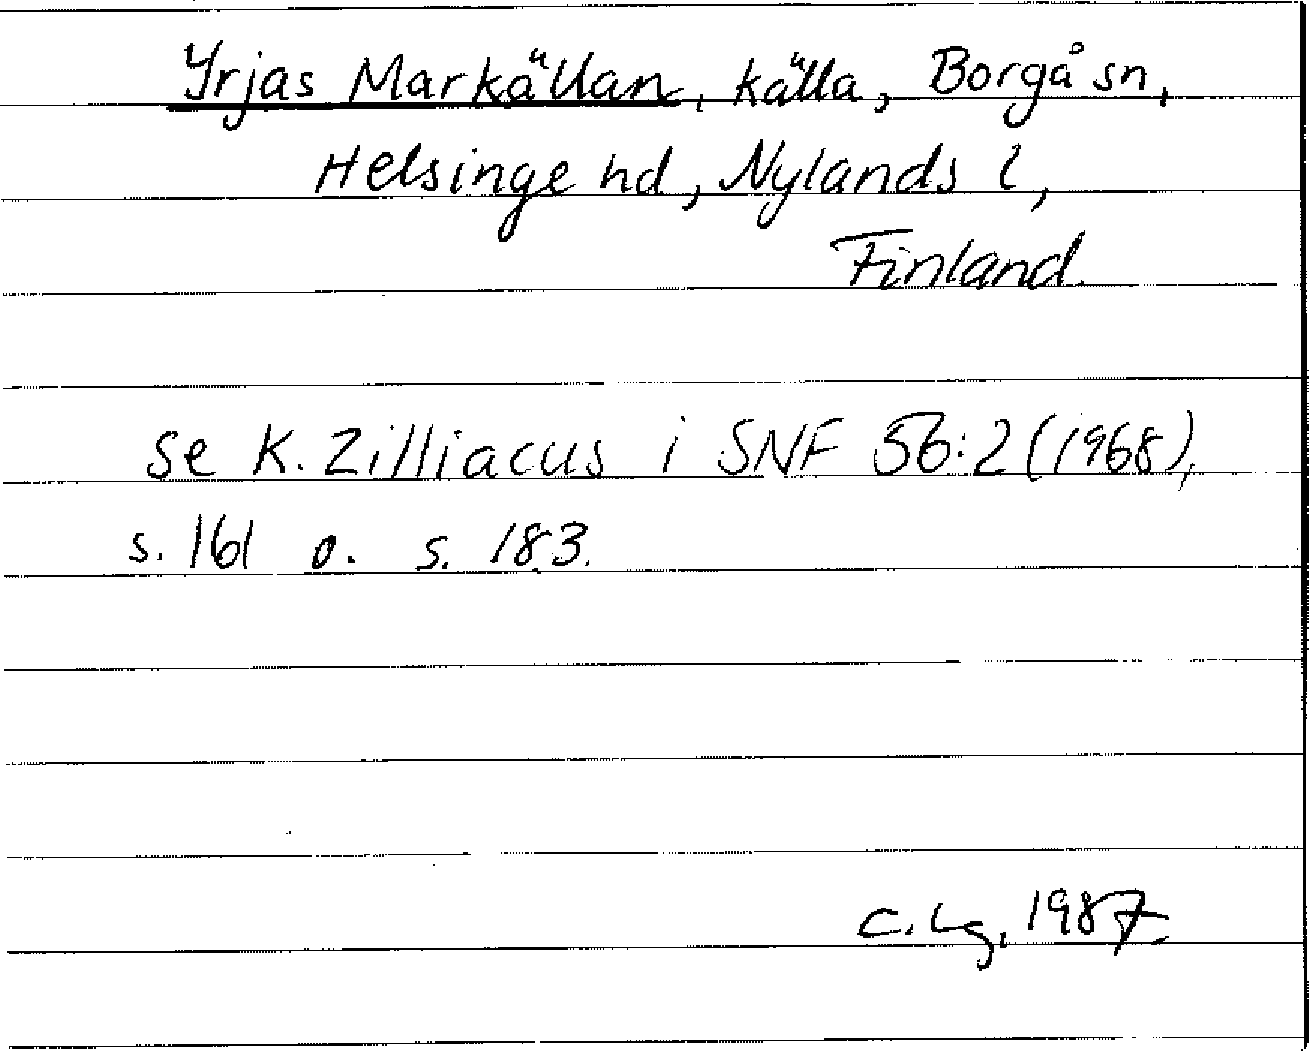 Yrjas Markällan, källa, Borgå sn,
Helsinge hd, Nylands l,
Finland.
se K. Zilliacus i SNF 56:2 (1968),
s. 161 o. s. 183.
C. Lg, 1987.